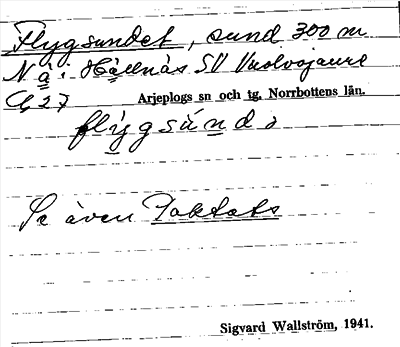 Flygsundet, sund 300 m
N å i Hällnäs SV Vuolvojaure
C 27 Arjeplogs sn och tg, Norrbottens län.
flýgsúndə
Se även Taktats
Sigvard Wallström, 1941.